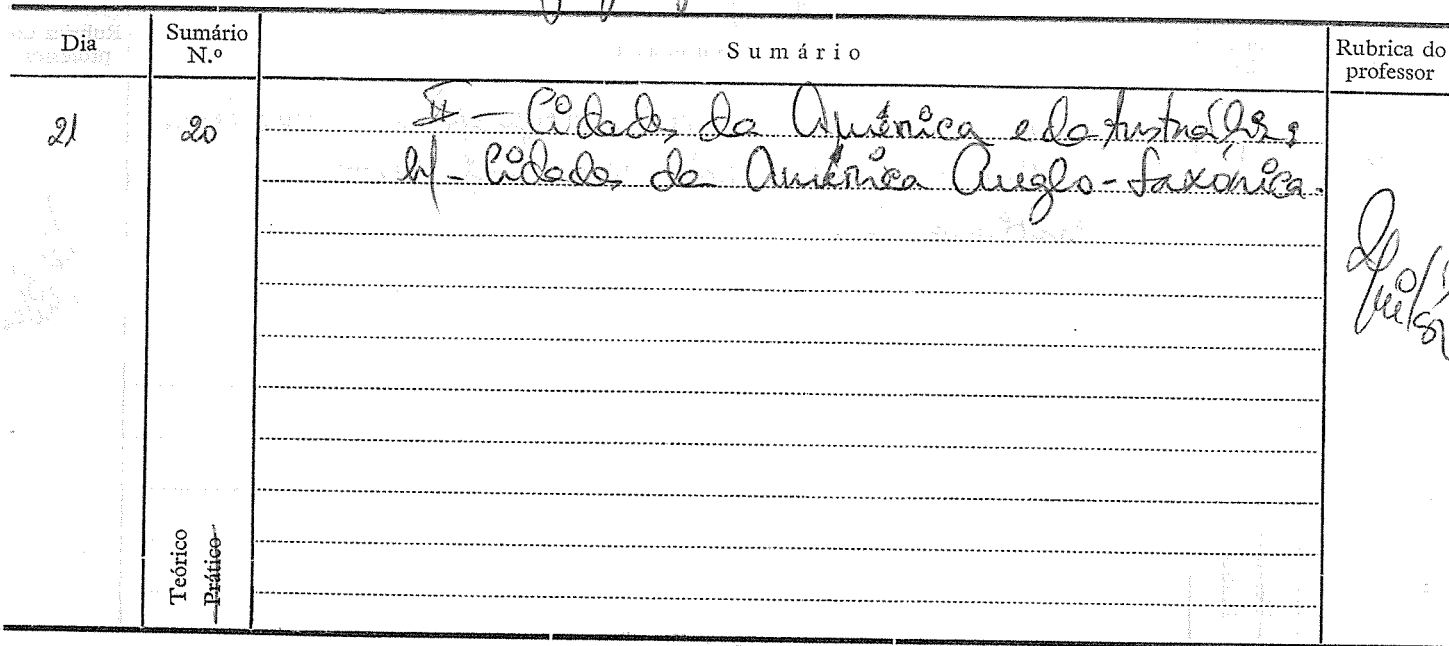 Dia
Sumário N.º
Sumário
Rubrica do professor
21
20
II - Cidades da América e da Austrália:
b) - Cidades da América Anglo-Saxónica.
Teórico
Prático